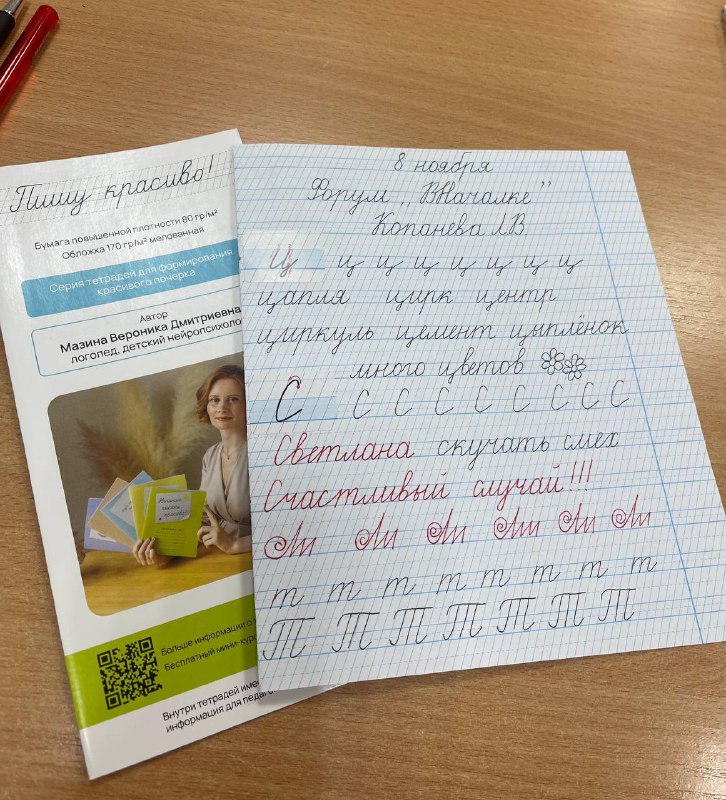 Пишу красиво!
Бумага повышенной плотности 80 гр/м²
Обложка 170 гр/м² мелованная
Серия тетрадей для формирования
красивого почерка
Автор
Мазина Вероника Дмитриевна
логопед, детский нейропсихоло
Больше информации о
Бесплатный мини-кур
Внутри тетрадей име
информация для педаг
8 ноября
Форум „ВНачалке”
Копанева ЛВ
ц ц ц ц ц ц ц ц
цапля цирк центр
циркуль цемент цыпленок
много цветов
С С С С С С С С С
Светлана скучать смех
Счастливый случай!!!
т т т т т т т т
Т Т Т Т Т Т Т